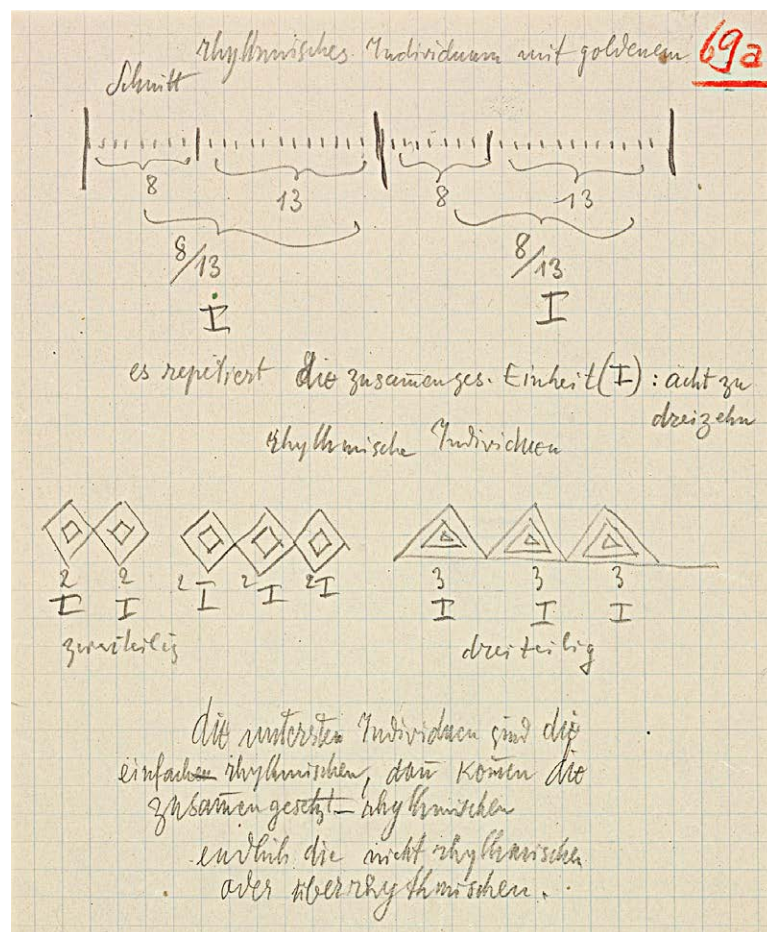 69a
rhythmisches Individuum mit goldenem
Schnitt
8 13 8 13
8/13 8/13
I I
es repetiert die zusam̄enges. Einheit (I) : acht zu
dreizehn
rhythmische Individuen
2 2 2 2 2 3 3 3
I I I I I I I I
zweiteilig dreiteilig
die untersten Individuen sind die
einfach rhythmischen, dan̄ kom̄en die
zusam̄engesetzt-rhythmischen
endlich die nicht rhythmischen
oder überrhythmischen.